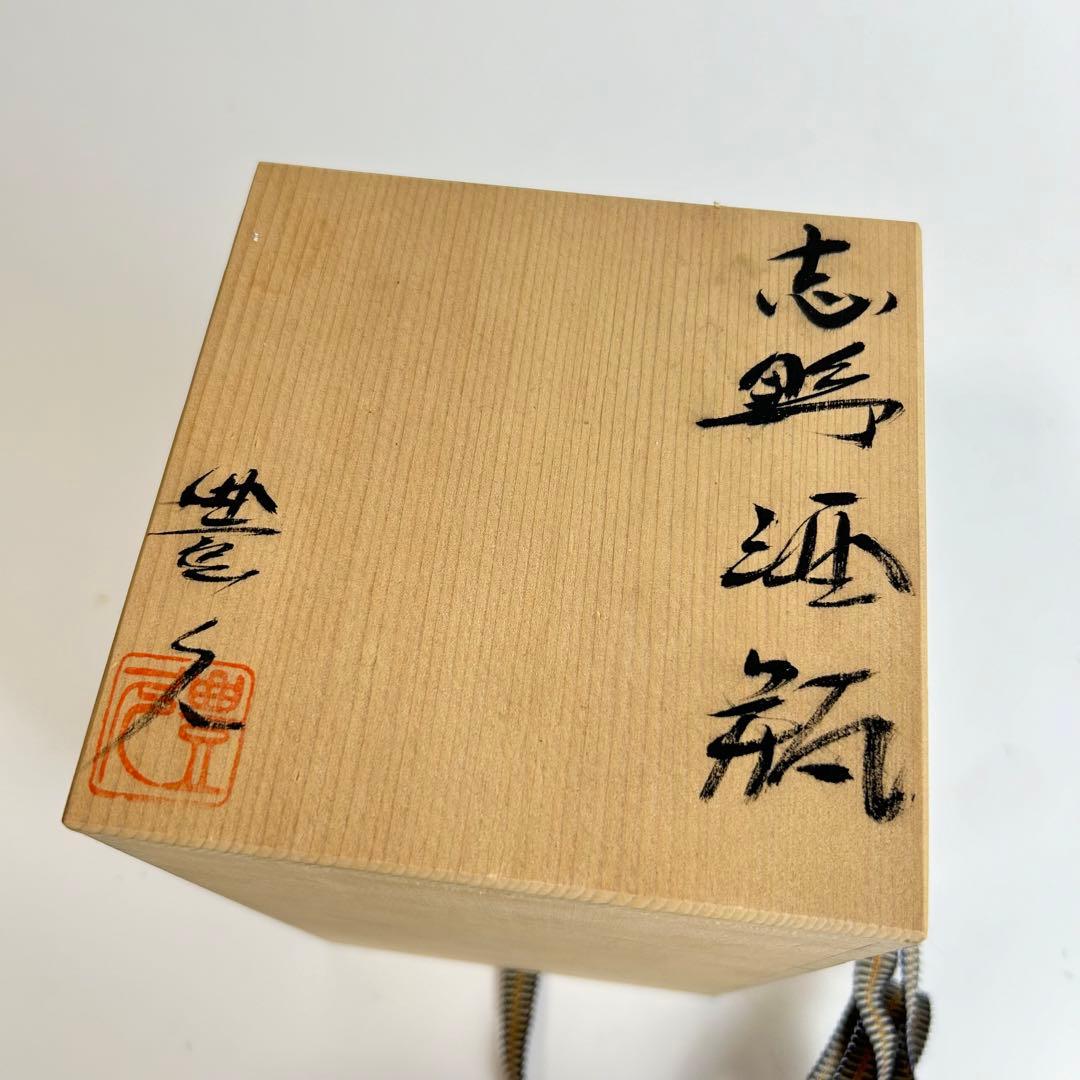 志野酒瓶
豊久